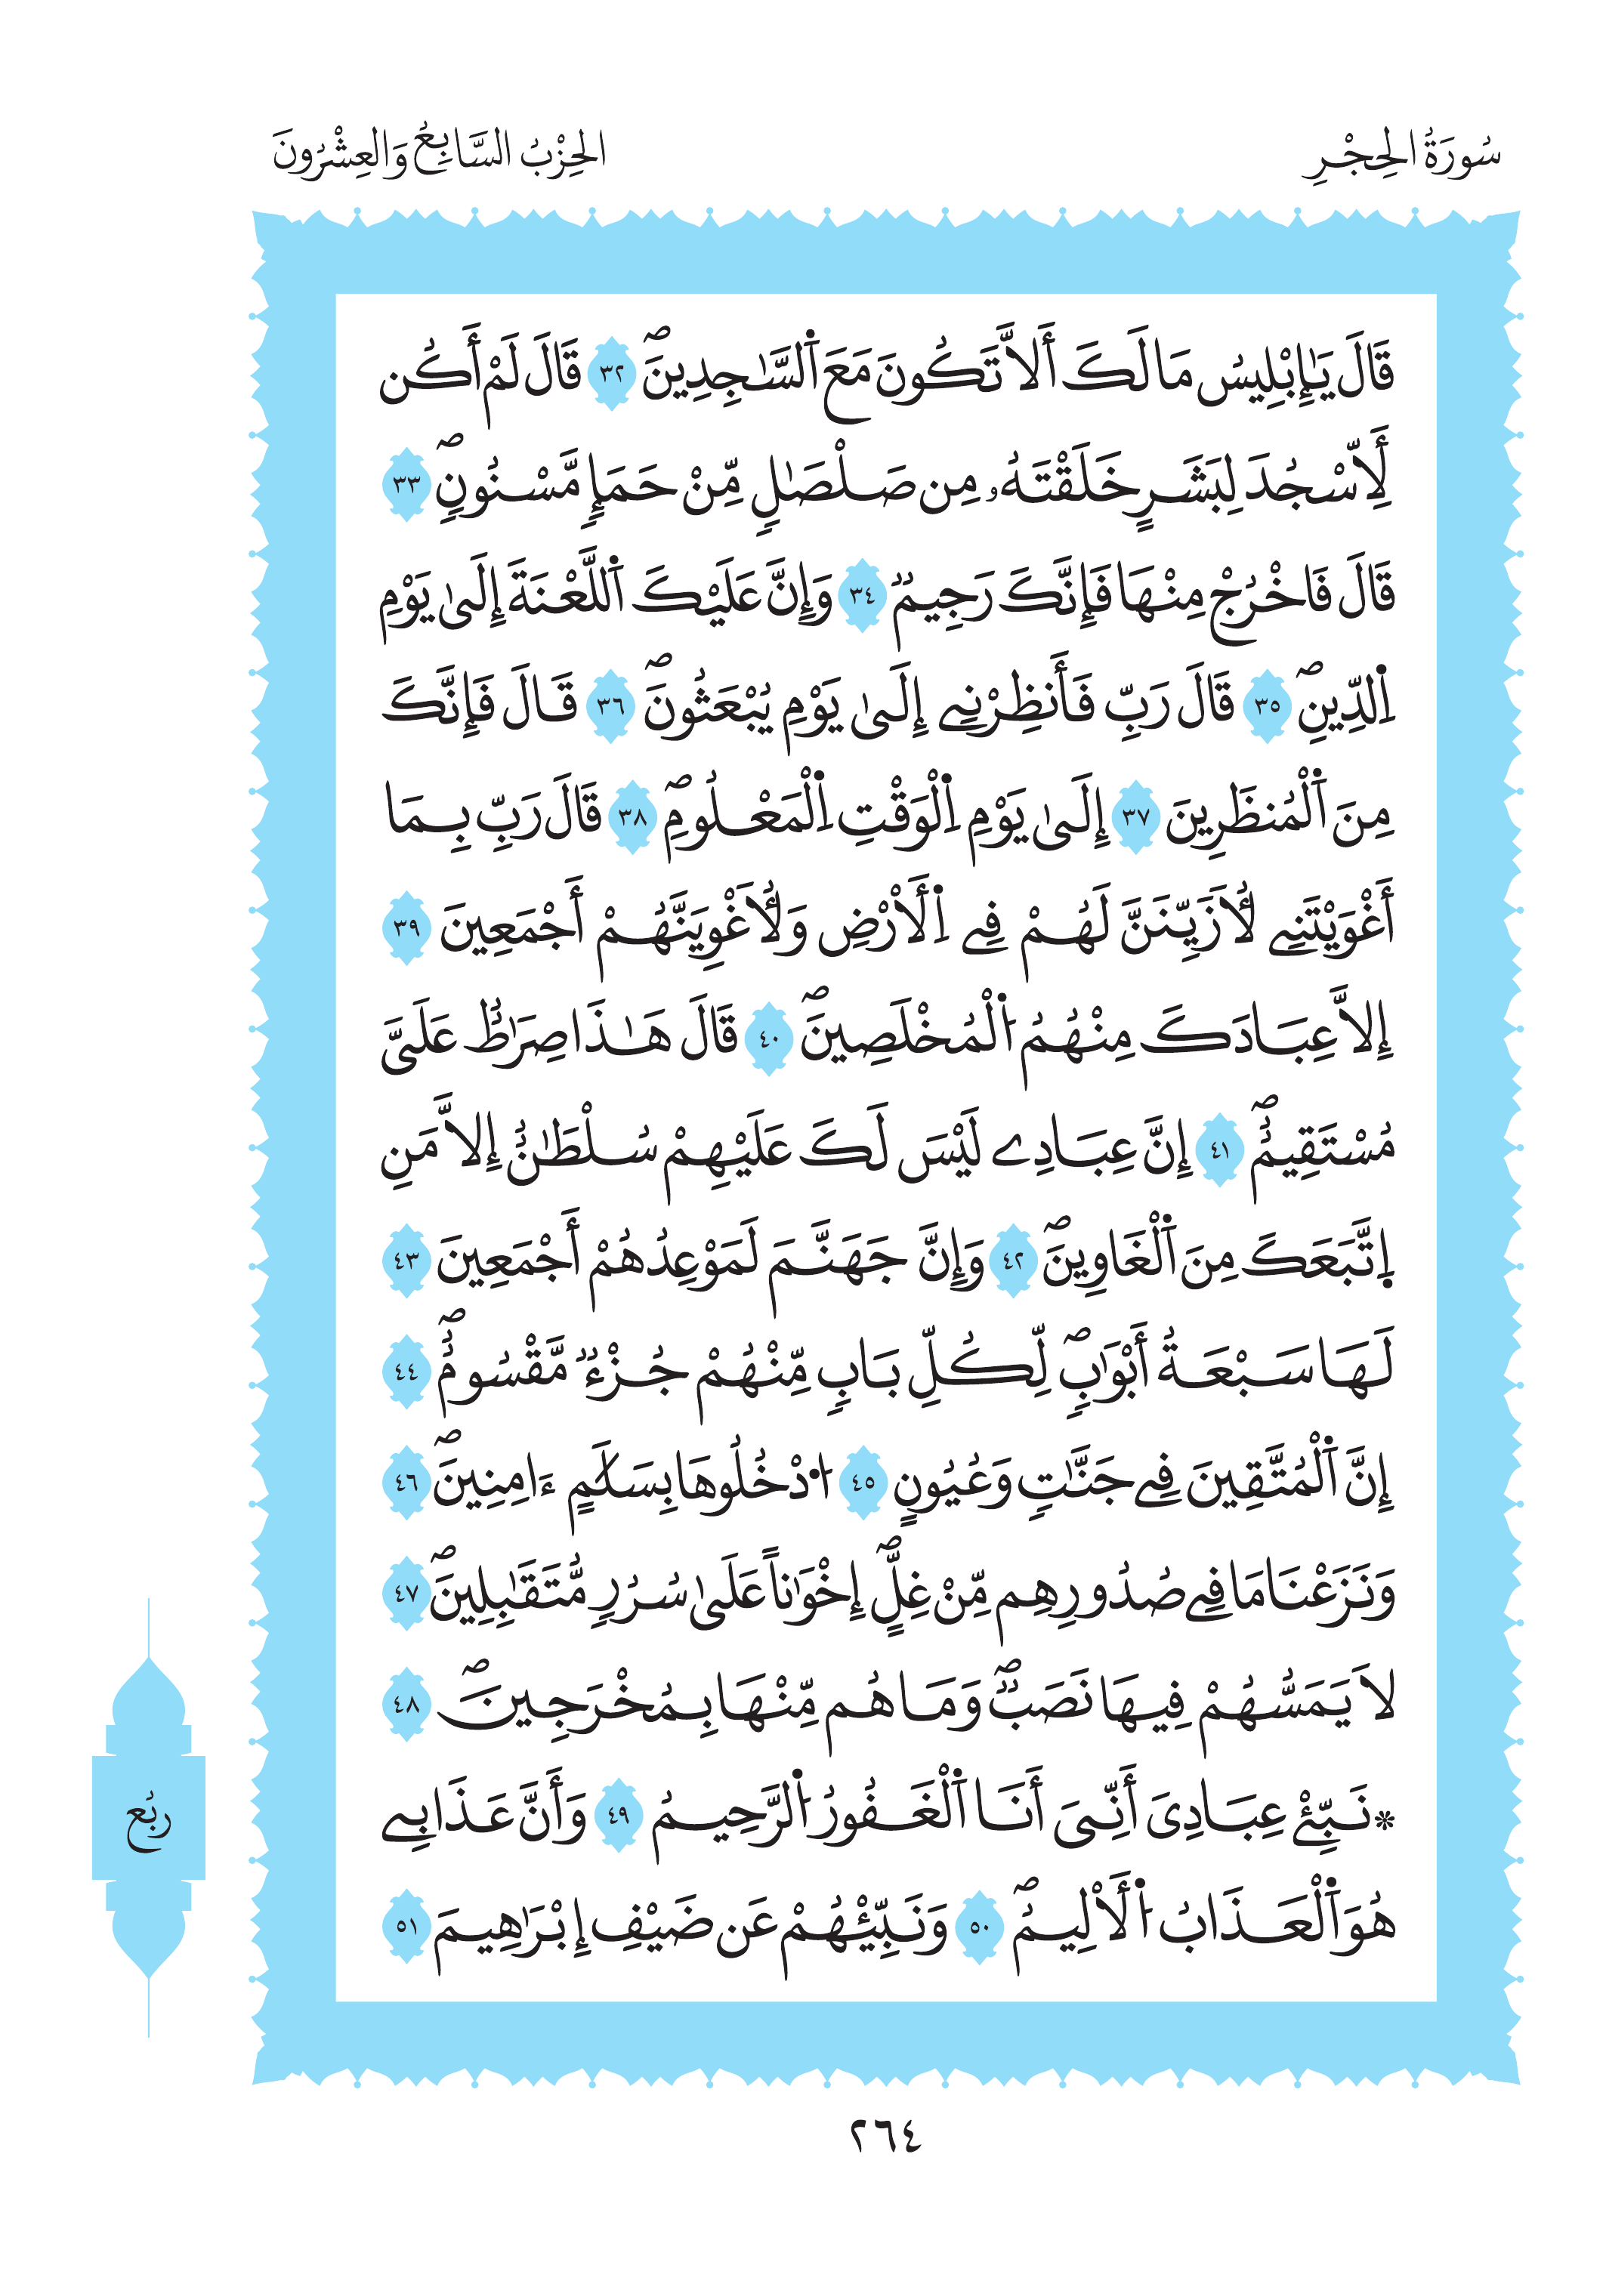 سُورَةُ الحِجْرِ
الحِزْبُ السَّابِعُ وَالعِشْرُونَ
قَالَ يَٰإِبْلِيسُ مَا لَكَ أَلاَّ تَكُونَ مَعَ اَ۬لسَّٰجِدِينَۖ ٣٢ قَالَ لَمْ أَكُن
لِّأَسْجُدَ لِبَشَرٍ خَلَقْتَهُۥ مِن صَلْصَٰلٖ مِّنْ حَمَإٖ مَّسْنُونٖۖ ٣٣
قَالَ فَاخْرُجْ مِنْهَا فَإِنَّكَ رَجِيمٞ ٣٤ وَإِنَّ عَلَيْكَ اَ۬للَّعْنَةَ إِلَىٰ يَوْمِ
اِ۬لدِّينِۖ ٣٥ قَالَ رَبِّ فَأَنظِرْنِے إِلَىٰ يَوْمِ يُبْعَثُونَۖ ٣٦ قَالَ فَإِنَّكَ
مِنَ اَ۬لْمُنظَرِينَ ٣٧ إِلَىٰ يَوْمِ اِ۬لْوَقْتِ اِ۬لْمَعْلُومِۖ ٣٨ قَالَ رَبِّ بِمَا
أَغْوَيْتَنِے لَأُزَيِّنَنَّ لَهُمْ فِے اِ۬لَارْضِ وَلَأُغْوِيَنَّهُمْ أَجْمَعِينَ ٣٩
إِلاَّ عِبَادَكَ مِنْهُمُ اُ۬لْمُخْلَصِينَۖ ٤٠ قَالَ هَٰذَا صِرَٰطٌ عَلَىَّ
مُسْتَقِيمٌۖ ٤١ إِنَّ عِبَادِے لَيْسَ لَكَ عَلَيْهِمْ سُلْطَٰنٌ إِلاَّ مَنِ
اِ۪تَّبَعَكَ مِنَ اَ۬لْغَاوِينَۖ ٤٢ وَإِنَّ جَهَنَّمَ لَمَوْعِدُهُمْ أَجْمَعِينَ ٤٣
لَهَا سَبْعَةُ أَبْوَٰبٖۖ لِّكُلِّ بَابٖ مِّنْهُمْ جُزْءٞ مَّقْسُومٌۖ ٤٤
إِنَّ اَ۬لْمُتَّقِينَ فِے جَنَّٰتٖ وَعُيُونٍ ٤٥ اُ۟دْخُلُوهَا بِسَلَٰمٍ ءَامِنِينَۖ ٤٦
وَنَزَعْنَا مَا فِے صُدُورِهِم مِّنْ غِلٍّۖ إِخْوَٰناً عَلَىٰ سُرُرٖ مُّتَقَٰبِلِينَۖ ٤٧
لَا يَمَسُّهُمْ فِيهَا نَصَبٞۖ وَمَا هُم مِّنْهَا بِمُخْرَجِينَۖ ٤٨
۞نَبِّۓْ عِبَادِىَ أَنِّىَ أَنَا اَ۬لْغَفُورُ اُ۬لرَّحِيمُ ٤٩ وَأَنَّ عَذَابِے
هُوَ اَ۬لْعَذَابُ اُ۬لَالِيمُۖ ٥٠ وَنَبِّئْهُمْ عَن ضَيْفِ إِبْرَٰهِيمَ ٥١
ربُع
٢٦٤